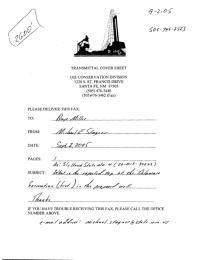 9-2-05
TRANSMITTAL COVER SHEET
OIL CONSERVATION DIVISION
1220 S. ST. FRANCIS DRIVE
SANTA FE, NM 87505
(505) 476-3440
(505)476-3462 (Fax)
PLEASE DELIVER THIS FAX:
TO: Miller
FROM: Michael E. Stogner
DATE: Sept. 2, 2005
PAGES: 1
SUBJECT: What is the expected top of the Delaware
formation in the proposed well
Thanks
IF YOU HAVE TROUBLE RECEIVING THIS FAX, PLEASE CALL THE OFFICE
NUMBER ABOVE.
e-mail address: michael.stogner@state.nm.us